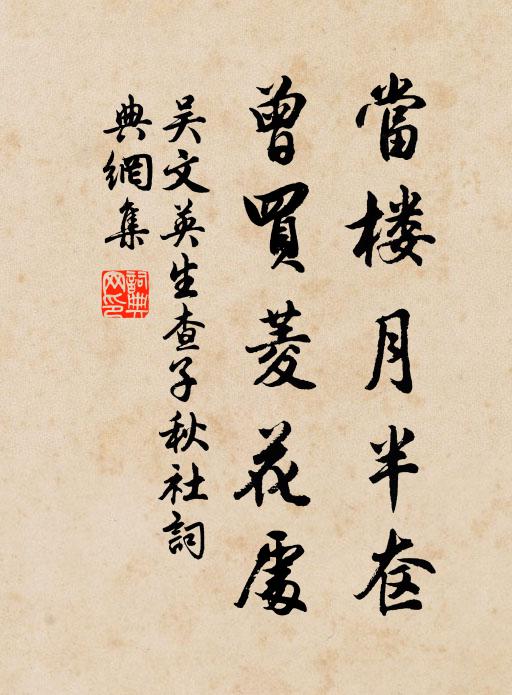 當楼月半奁
曾買菱花處
吴文英生查子秋社詞
典網集
詞典网印